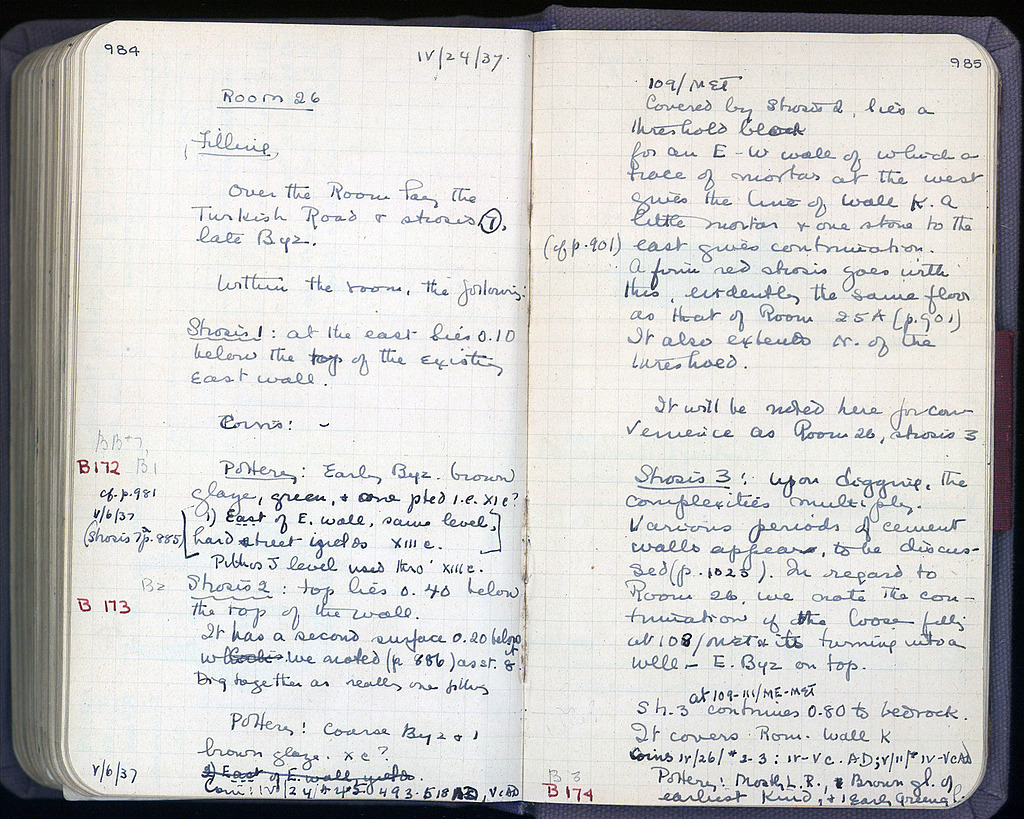 984
IV/24/37.
Room 26
Filling
Over the Room lay the
Turkish Road & strosis 7,
late Byz.
Within the room, the following:
Strosis 1: at the east lies 0.10
below the top of the existing
East wall.
Coins: -
B172 B1
Pottery: Early Byz. brown
glaze, green, & one pted i.e. XI c?
cf. p. 981
V/6/37
1) East of E. wall, same level,
(strosis 7 p. 885)
hard street yields XIII c.
Pithos J level used thro' XIII c.
B2
Strosis 2: top lies 0.40 below
B 173
the top of the wall.
It has a second surface 0.20 below
we noted (p. 886) as st. 8.
Dig together as really one filling
Pottery: Coarse Byz & 1
brown glaze. X c?
V/6/37
1) East of E. wall, yields.
Coin: IV/24/37
985
109/MET
Covered by Strosis 2, lies a
threshold block
for an E-W wall of which a
trace of mortar at the west
gives the line of wall K. A
little mortar & one stone to the
(cf p. 901) east gives continuation.
A firm red strosis goes with
this, evidently the same floor
as that of Room 25A (p. 901)
It also extends N. of the
threshold.
It will be noted here for con-
venience as Room 26, strosis 3
Strosis 3: upon digging, the
complexities multiply.
Various periods of cement
walls appear, to be discus-
sed (p. 1025). In regard to
Room 26, we note the con-
tinuation of the loose fill
at 108/MET & its turning into a
well - E. Byz on top.
at 109-111/ME-MET
Str. 3 continues 0.80 to bedrock.
It covers Rom. Wall K
Coins IV/26/37 2-3: IV-V c. A.D; V/11/37 IV-V c AD
B 3
B 174
Pottery: Mostly L.R., & Brown gl. of
earliest kind, & 1 Early Green gl.